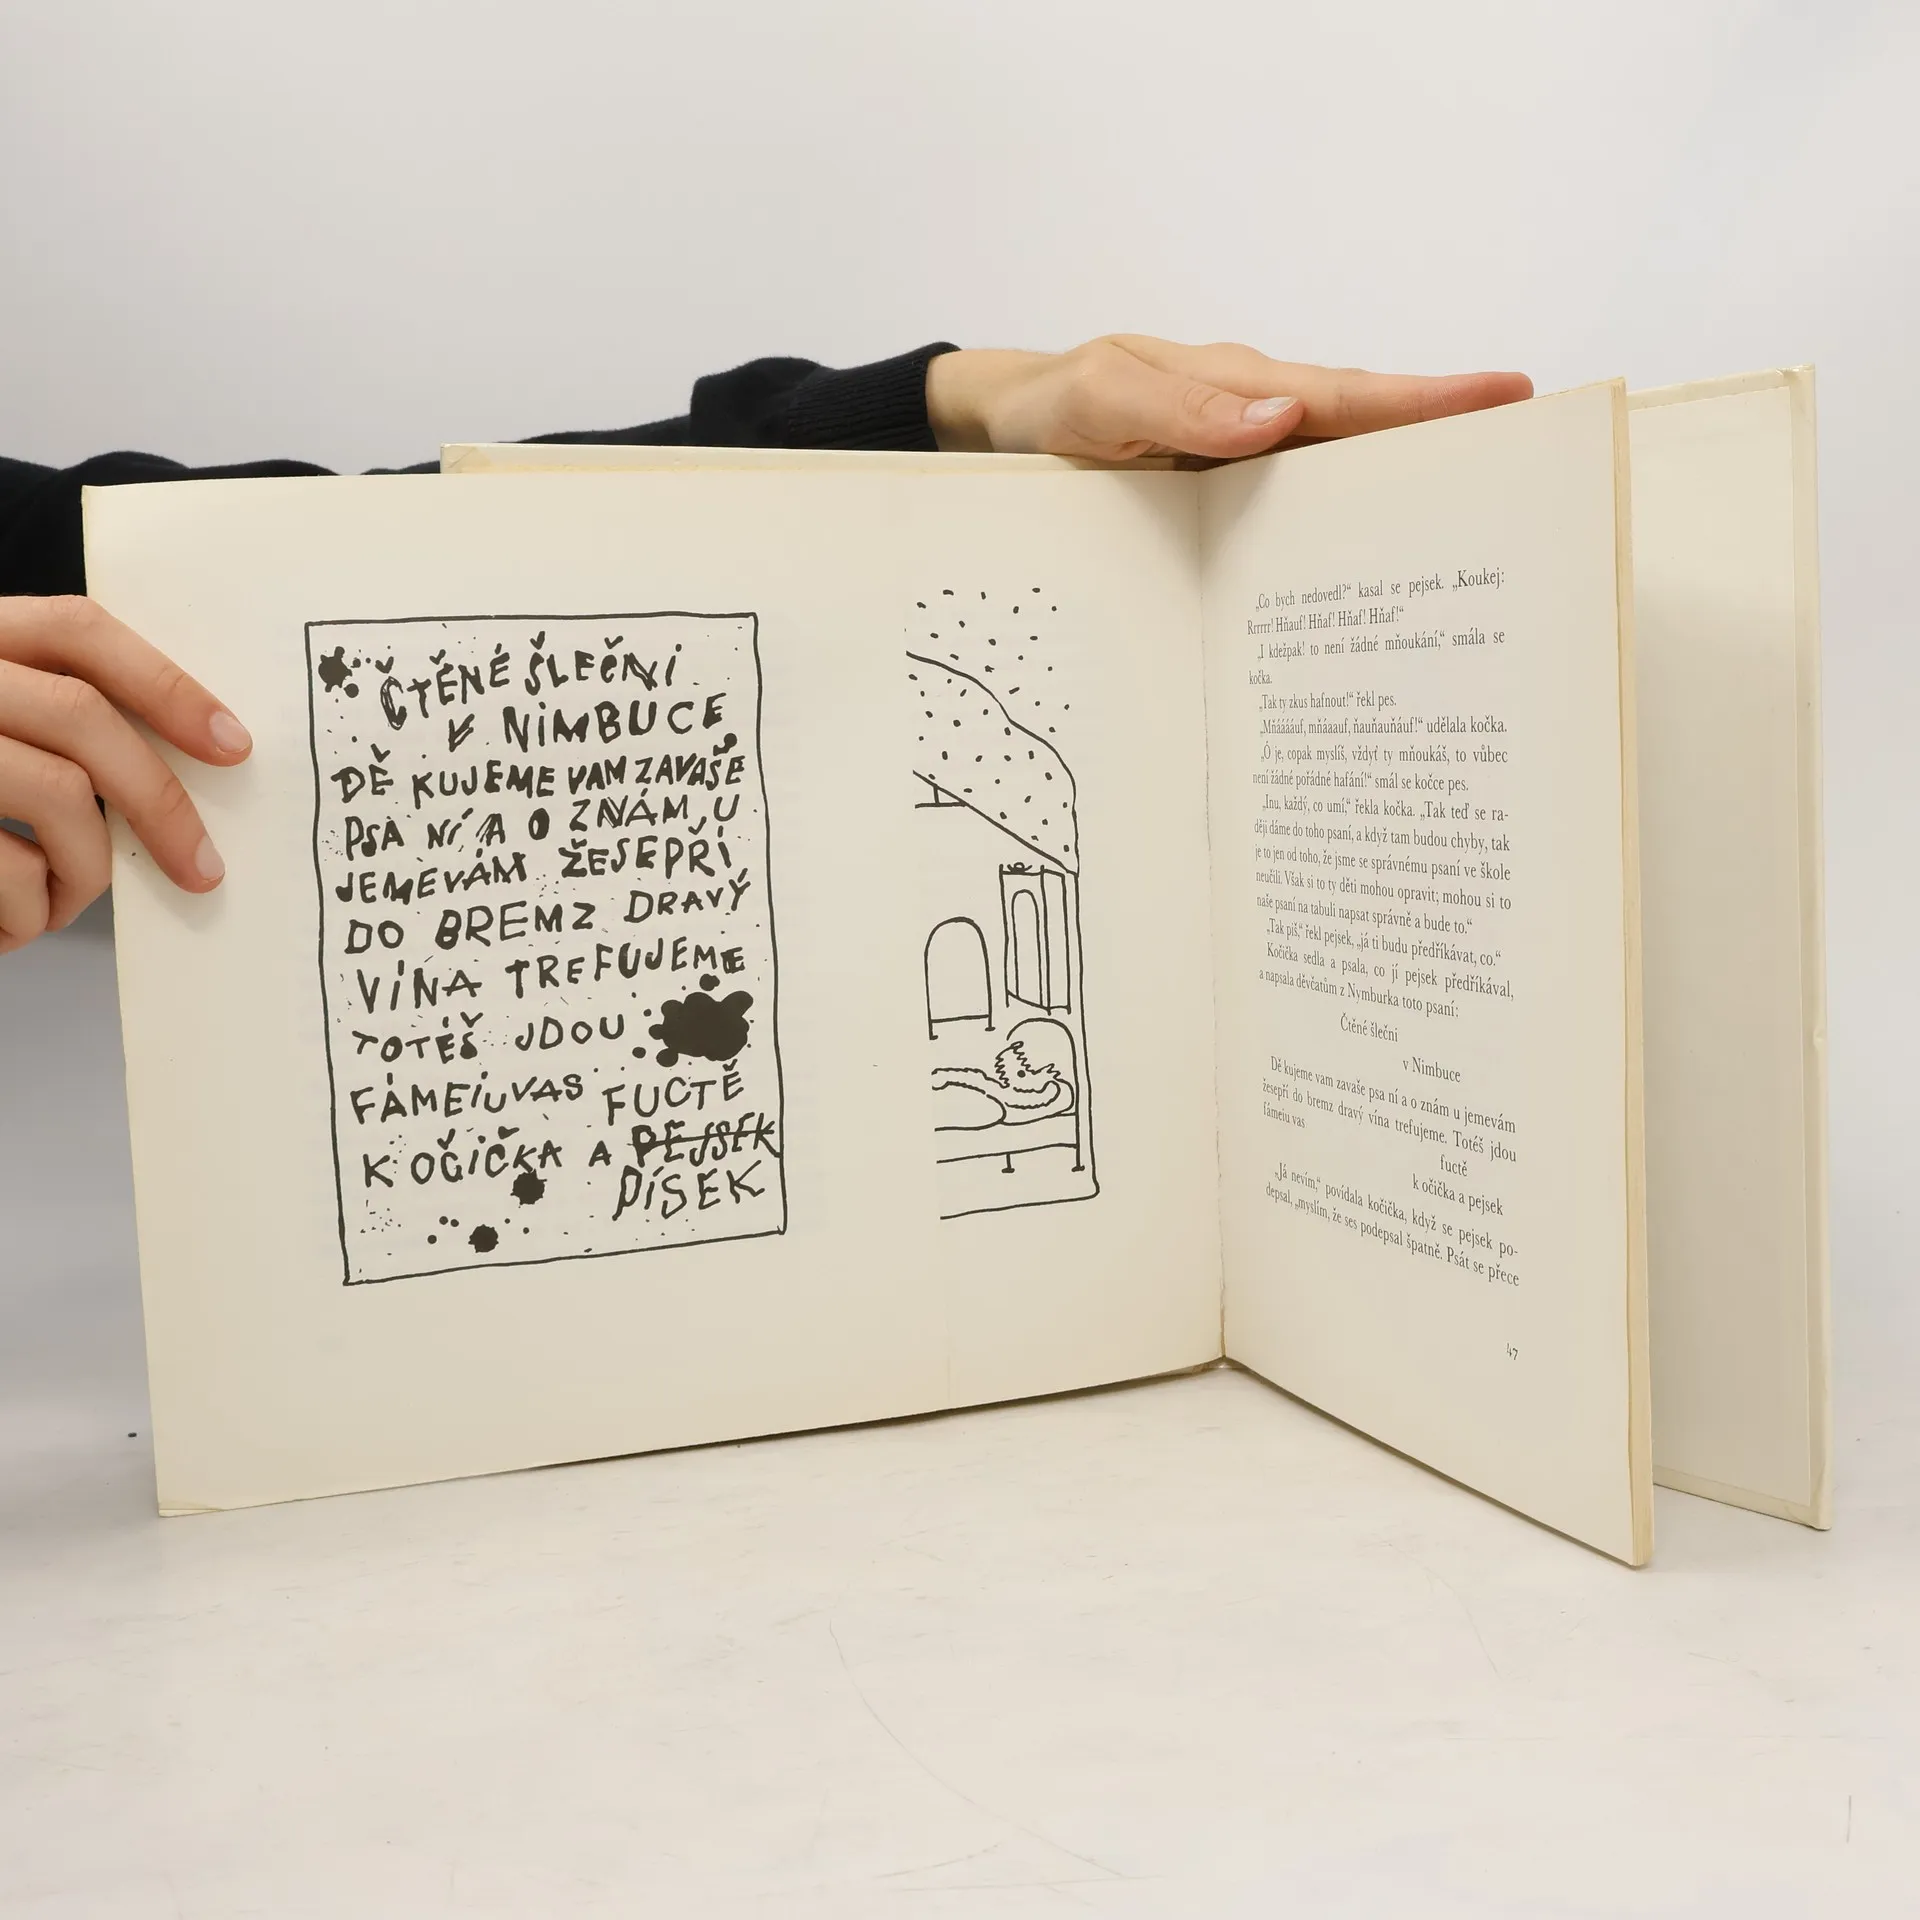 ČTĚNÉ ŠLEČNI
V NIMBUCE
DĚ KUJEME VAM ZAVAŠE
PSA NÍ A O ZNÁM U
JEMEVÁM ŽESEPŘÍ
DO BREMZ DRAVÝ
VÍNA TREFUJEME
TOTÉŠ JDOU
FÁMEIUVAS FUCTĚ
K OČIČKA A PEJSEK
PÍSEK
„Co bych nedovedl?“ kasal se pejsek. „Koukej:
Rrrrrr! Hňauf! Hňaf! Hňaf! Hňaf!“
„I kdežpak! to není žádné mňoukání,“ smála se
kočka.
„Tak ty zkus hafnout!“ řekl pes.
„Mňááááuf, mňáaauf, ňauňauňáuf!“ udělala kočka.
„Ó je, copak myslíš, vždyť ty mňoukáš, to vůbec
není žádné pořádné hafání!“ smál se kočce pes.
„Inu, každý, co umí,“ řekla kočka. „Tak teď se ra-
ději dáme do toho psaní, a když tam budou chyby, tak
je to jen od toho, že jsme se správnému psaní ve škole
neučili. Však si to ty děti mohou opravit; mohou si to
naše psaní na tabuli napsat správně a bude to.“
„Tak piš,“ řekl pejsek, „já ti budu předříkávat, co.“
Kočička sedla a psala, co jí pejsek předříkával,
a napsala děvčatům z Nymburka toto psaní:
Čtěné šlečni
v Nimbuce
Dě kujeme vam zavaše psa ní a o znám u jemevám
žesepří do bremz dravý vína trefujeme. Totéš jdou
fámeiu vas
fuctě
k očička a pejsek
„Já nevím,“ povídala kočička, když se pejsek po-
depsal, „myslím, že ses podepsal špatně. Psát se přece
47